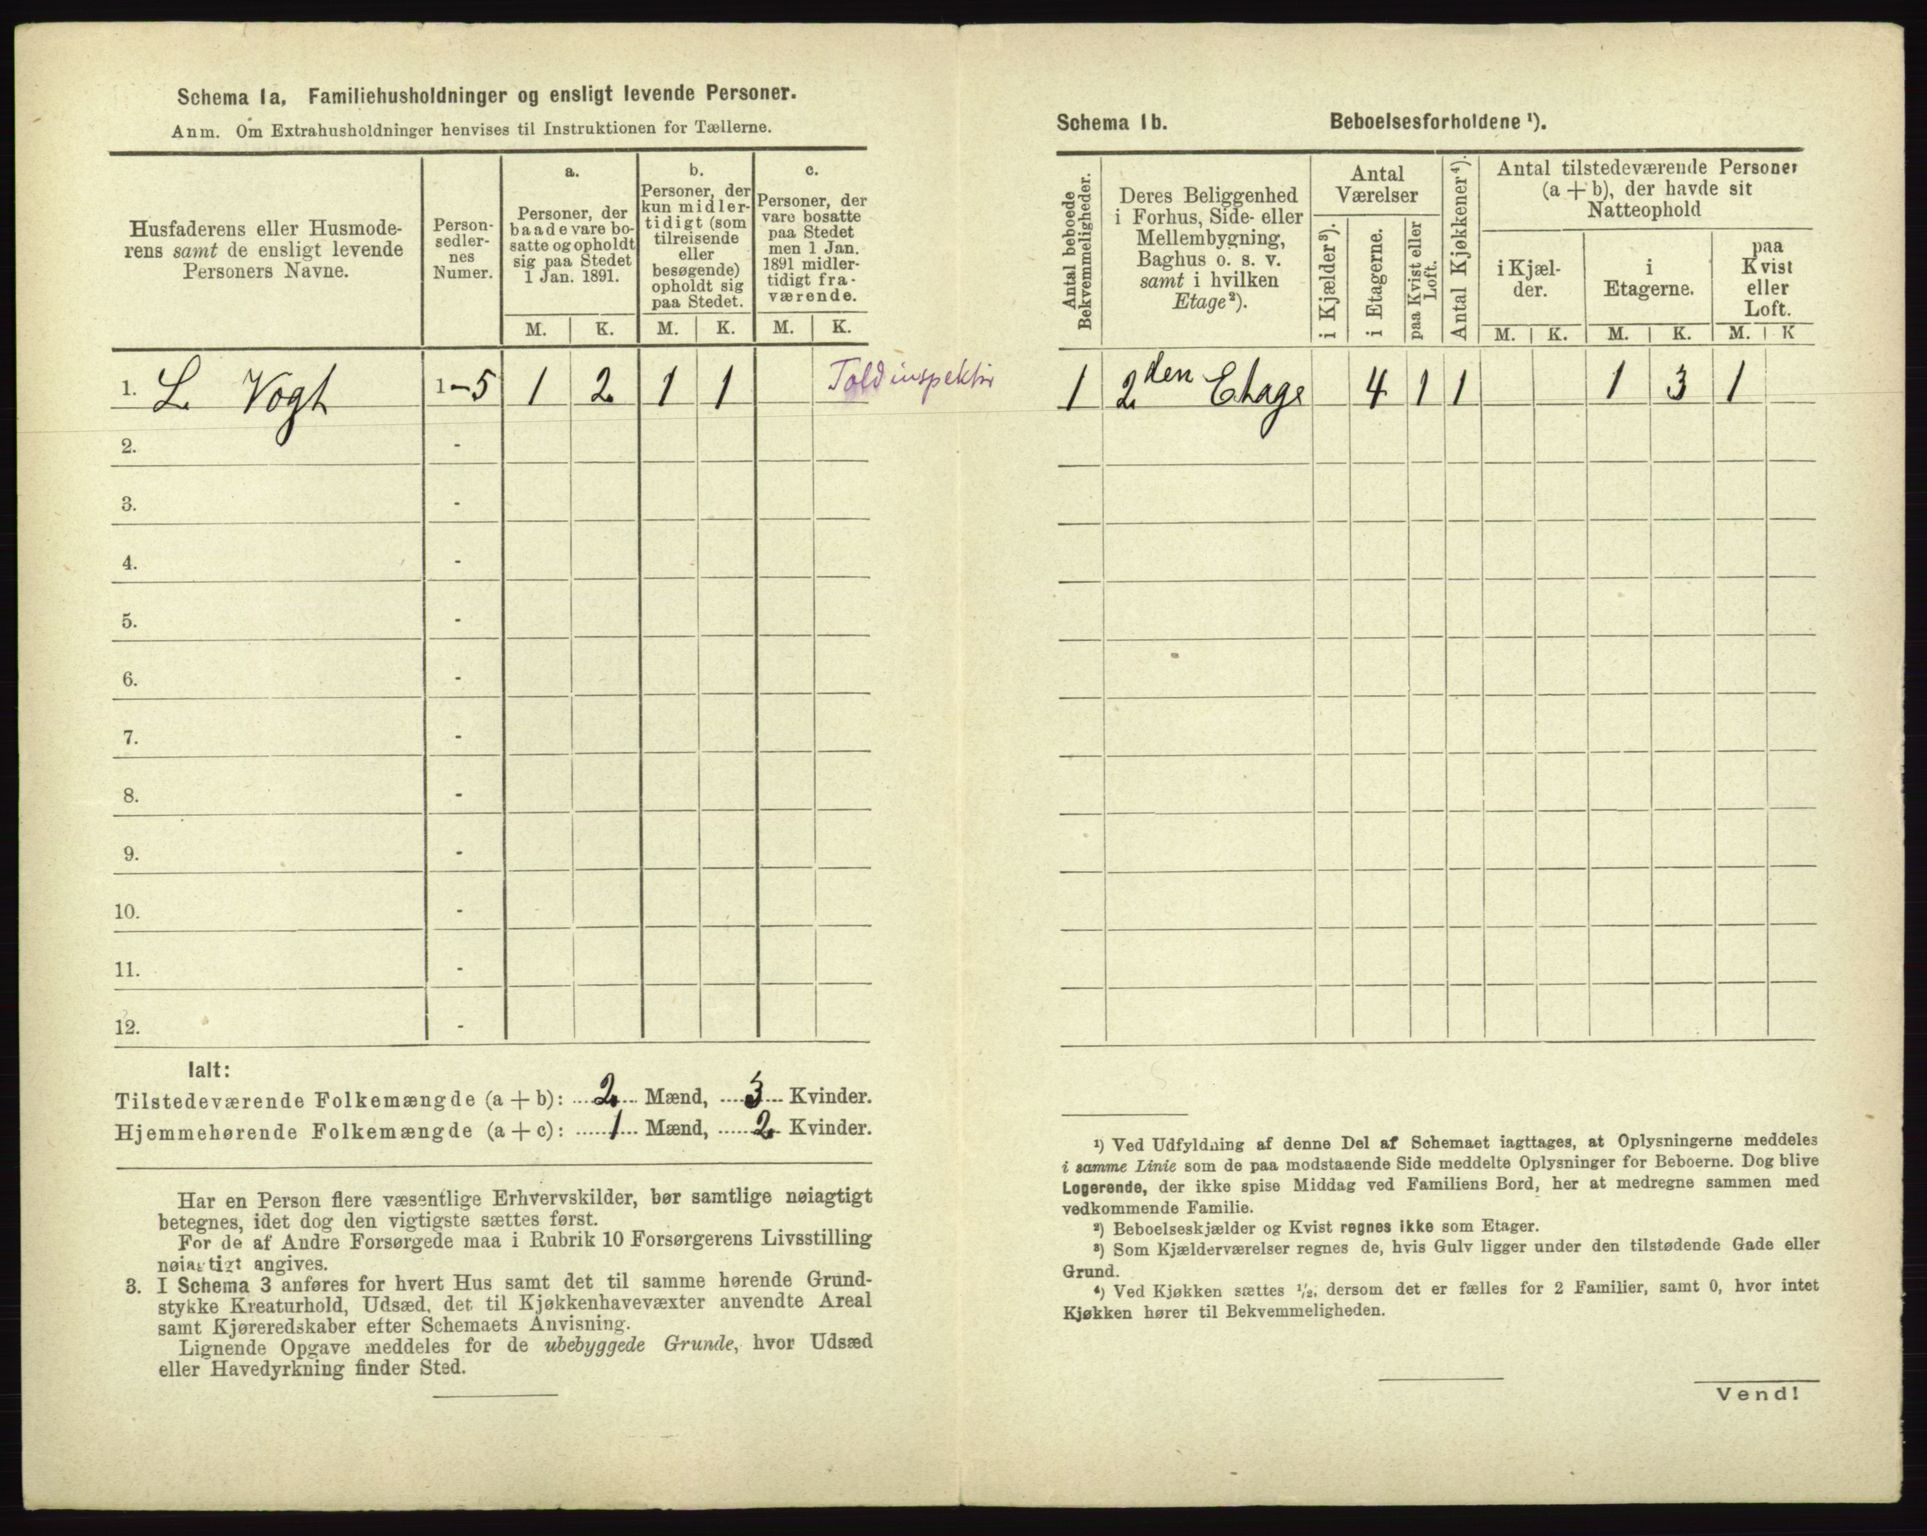 Schema 1a, Familiehusholdninger og ensligt levende Personer.
Anm. Om Extrahusholdninger henvises til Instruktionen for Tællerne.
Husfaderens eller Husmode-
rens samt de ensligt levende
Personers Navne.
Person-
sedler-
nes
Numer.
a.
Personer, der
baade vare bo-
satte og opholdt
sig paa Stedet
1 Jan. 1891.
b.
Personer, der
kun midler-
tidigt (som
tilreisende
eller
besøgende)
opholdt sig
paa Stedet.
c.
Personer, der
vare bosatte
paa Stedet
men 1 Jan.
1891 midler-
tidigt fra-
værende.
M. K. M. K. M. K.
1. L. Vogt 1-5 1 2 1 1 Toldinspektør
2. -
3. -
4. -
5. -
6. -
7. -
8. -
9. -
10. -
11. -
12. -
Ialt:
Tilstedeværende Folkemængde (a + b): 2 Mænd, 3 Kvinder.
Hjemmehørende Folkemængde (a + c): 1 Mænd, 2 Kvinder.
Har en Person flere væsentlige Erhvervskilder, bør samtlige nøiagtigt
betegnes, idet dog den vigtigste sættes først.
For de af Andre Forsørgede maa i Rubrik 10 Forsørgerens Livsstilling
nøiagtigt angives.
3. I Schema 3 anføres for hvert Hus samt det til samme hørende Grund-
stykke Kreaturhold, Udsæd, det til Kjøkkenhavevæxter anvendte Areal
samt Kjøreredskaber efter Schemaets Anvisning.
Lignende Opgave meddeles for de ubebyggede Grunde, hvor Udsæd
eller Havedyrkning finder Sted.
Schema 1b. Beboelsesforholdene ¹).
Antal beboede
Bekvemmeligheder.
Deres Beliggenhed
i Forhus, Side- eller
Mellembygning,
Baghus o. s. v.
samt i hvilken
Etage ²).
Antal
Værelser
i Kjælder ³).
i Etagerne.
paa Kvist eller
Loft.
Antal Kjøkkener ⁴).
Antal tilstedeværende Personer
(a + b), der havde sit
Natteophold
i Kjæl-
der.
i
Etagerne.
paa
Kvist
eller
Loft.
M. K. M. K. M. K
1 2den Etage 4 1 1 1 3 1
¹) Ved Udfyldning af denne Del af Schemaet iagttages, at Oplysningerne meddeles
i samme Linie som de paa modstaaende Side meddelte Oplysninger for Beboerne. Dog blive
Logerende, der ikke spise Middag ved Familiens Bord, her at medregne sammen med
vedkommende Familie.
²) Beboelseskjælder og Kvist regnes ikke som Etager.
³) Som Kjælderværelser regnes de, hvis Gulv ligger under den tilstødende Gade eller
Grund.
⁴) Ved Kjøkken sættes ½, dersom det er fælles for 2 Familier, samt 0, hvor intet
Kjøkken hører til Bekvemmeligheden.
Vend!